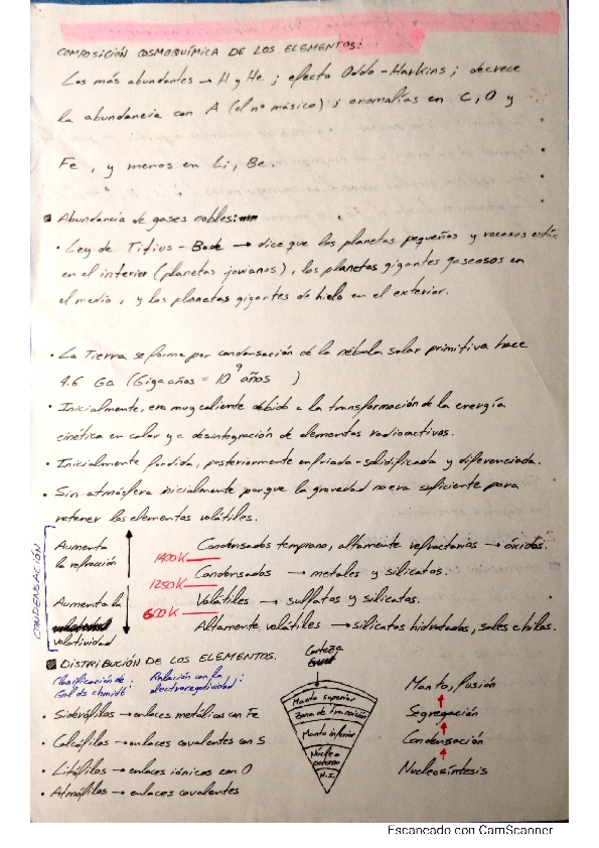 COMPOSICIÓN COSMOQUÍMICA DE LOS ELEMENTOS:
Los más abundantes → H y He ; efecto Oddo - Harkins ; decrece
la abundancia con A (el nº másico) ; anomalías en C, O y
Fe , y menos en Li, Be.
Abundancia de gases nobles:
• Ley de Titius - Bode → dice que los planetas pequeños y rocosos están
en el interior (planetas jovianos), los planetas gigantes gaseosos en
el medio , y los planetas gigantes de hielo en el exterior.
• La Tierra se forma por condensación de la nébula solar primitiva hace
4.6 Ga (Gigaaños = 10⁹ años )
• Inicialmente, era muy caliente debido a la transformación de la energía
cinética en calor y a desintegración de elementos radioactivos.
• Inicialmente fundida, posteriormente enfriada - solidificada y diferenciada.
• Sin atmósfera inicialmente porque la gravedad no era suficiente para
retener los elementos volátiles.
CONDENSACIÓN
Aumenta
la refracción
Aumenta la
volatividad
Condensados temprano, altamente refractarios → óxidos.
1400K
Condensados → metales y silicatos.
1250K
Volátiles → sulfatos y silicatos.
600K
Altamente volátiles → silicatos hidratados, sales
DISTRIBUCIÓN DE LOS ELEMENTOS.
Clasificación de
Goldschmidt :
Relación con la
electronegatividad :
• Siderófilos → enlaces metálicos con Fe
• Calcófilos → enlaces covalentes con S
• Litófilos → enlaces iónicos con O
• Atmófilos → enlaces covalentes
Corteza
Manto superior
Zona de transición
Manto inferior
Núcleo
externo
N.I.
Manto, fusión
Segregación
Condensación
Nucleosíntesis
Escaneado con CamScanner